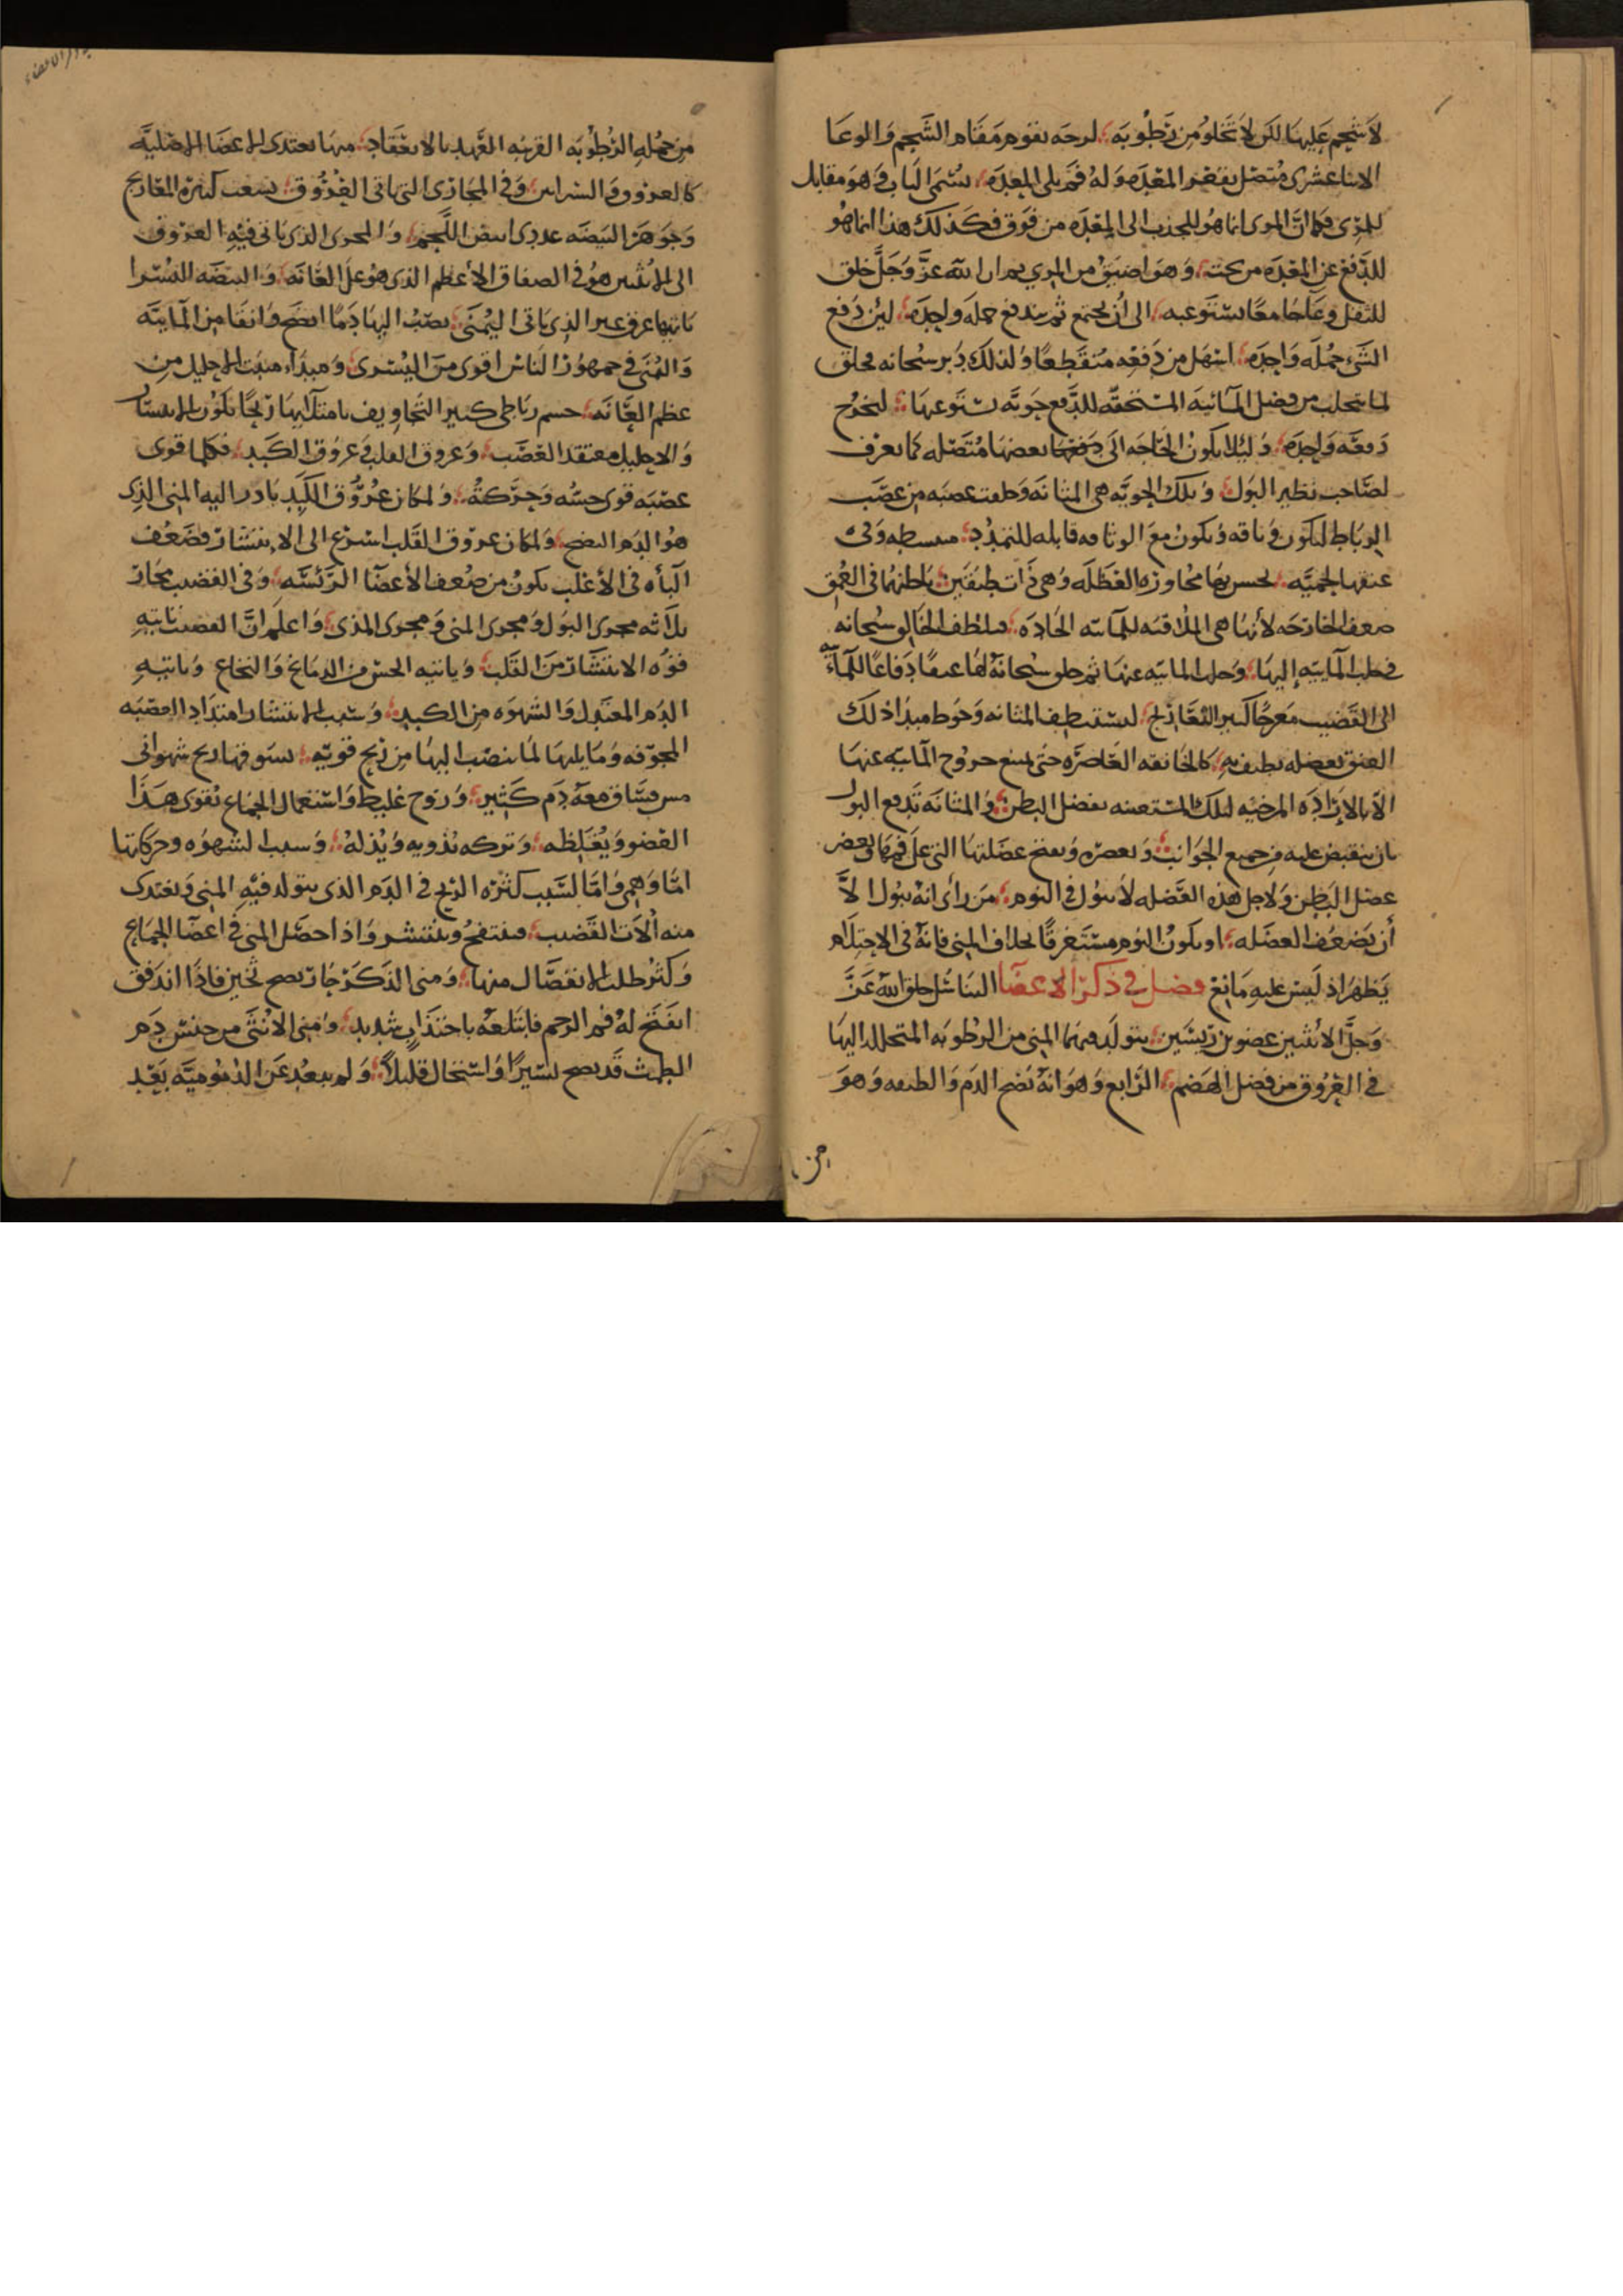 لا شحم عليها لكن لا تخلو من رطوبة لزجه تقوم مقام الشحم والوعا
الاثنا عشرى متصل بقعر المعده وله فم يلى المعده يسمى البواب وهو مقابل
للمرى فكما ان المرى انما هو للجذب الى المعده من فوق فكذلك هذا انما هو
للدفع عن المعده من تحت وهو اضيق من المرى ثم ان الله عز وجل خلق
للثفل وعا جامعا يستوعبه الى أن يجتمع ثم يندفع جمله واحده لين دفع
الشى جمله واحده اسهل من دفعه متقطعا ولذلك دبر سبحانه فخلق
لما يتحلب من فضل المائيه المستحقه للدفع جوبه تستوعبها لتخرج
دفعه واحده وليلا يكون الحاجه الى دفعها بعضها متصله كما يعرف
لصاحب تقطير البول وتلك الجوبه هى المثانه وخلقت عصبيه من عصب
الرباط لتكون وثاقه وتكون مع الوثاقه قابله للتمدد منبسطه وفى
عنقها لحميه لحس بها مجاوزه العضله وهى ذات طبقتين باطنهما فى العمق
ضعف الخارجه لأنها هى الملاقيه للمائيه الحاده فتلطف الخالق سبحانه
فى جلب المائيه إليها وجلب المائيه عنها ثم خلق سبحانه لها عنقا دفاعا للماء
الى القضيب معرجا كثير التعاريج لتستنظف المثانه وحوط مبدا ذلك
العنق بعضله تطيف به كالخانقه العاصره حتى تمنع خروج المائيه عنها
الا بالإراده المرخيه لتلك المستعينه بعضل البطن والمثانه تدفع البول
بان ينقبض عليه من جميع الجوانب وتعصره وتفتح عضلتها التى على فمها وبعض
عضل البطن ولاجل هذه العضله لا يبول فى النوم من رأى انه يبول الا
أن يضعف العضله او يكون النوم مستغرقا بخلاف المنى فانه فى الاحتلام
يظهر اذ ليس عليه مانع فصل فى ذكر الاعضا التناسل خلق الله عز
وجل الانثيين عضوين رييسين يتولد فيهما المنى من الرطوبه المتحلله اليها
فى العروق من فضل الهضم الرابع وهو انه نضج الدم والطفه وهو
من
من جمله الرطوبه القريبه العهد بالانعقاد منها تغتدى الاعضا الاصليه
كالعروق والشرايين وفى المجارى التى تاتى العروق تشعب كثيره التعاريج
وجوهر البيضه غددى ابيض اللحم والمجرى الذى ياتى فيه العروق
الى الانثيين هو فى الصفاق الأعظم الذى هو على العانه والبيضه اليسرا
ياتيها عرق غير الذى ياتى اليمنى يصب اليها دما انضج وانقا من المائيه
واليمنى فى جمهور الناس اقوى من اليسرى ومبداء منبت الاحليل من
عظم العانه جسم رباطى كثير التجاويف بامتلايها ريحا يكون الانتشار
والاحليل معتقد العصب وعروق القلب وعروق الكبد فكلما قوى
عصبه قوى حسه وحركته ولمكان عروق الكبد بادر اليه المنى الذى
هو الدم النضج ولمكان عروق القلب اسرع الى الانتشار فضعف
الباه فى الأغلب يكون من ضعف الأعضا الرئيسه وفى القضيب مجار
ثلاثه مجرى البول ومجرى المنى ومجرى المذى واعلم ان القضيب ياتيه
قوه الانتشار من القلب وياتيه الحس من الدماغ والنخاع وياتيه
الدم المعتدل والشهوه من الكبد وسبب الانتشار امتداد العصبه
المجوفه وما يليها لما ينصب اليها من ريح قويه يسوقها ريح شهوانى
متين ينساق معه دم كثير وروح غليظ واستعمال الجماع يقوى هذا
العضو ويغلظه وتركه يذويه ويذله وسبب الشهوه وحركاتها
اما وهمى واما لسبب كثره الريح فى الدم الذى يتولد فيه المنى وتغتدى
منه الات القضيب فينتفخ وينتشر واذا حصل المنى فى اعضا الجماع
وكثر طلب الانفصال منها ومنى الذكر حار نضج ثخين فاذا اندفق
انفتح له فم الرحم فابتلعه باجتذاب شديد ومنى الانثى من جنس دم
الطمث قد نضج يسيرا واستحال قليلا ولم يبعد عن الدمويه بعد